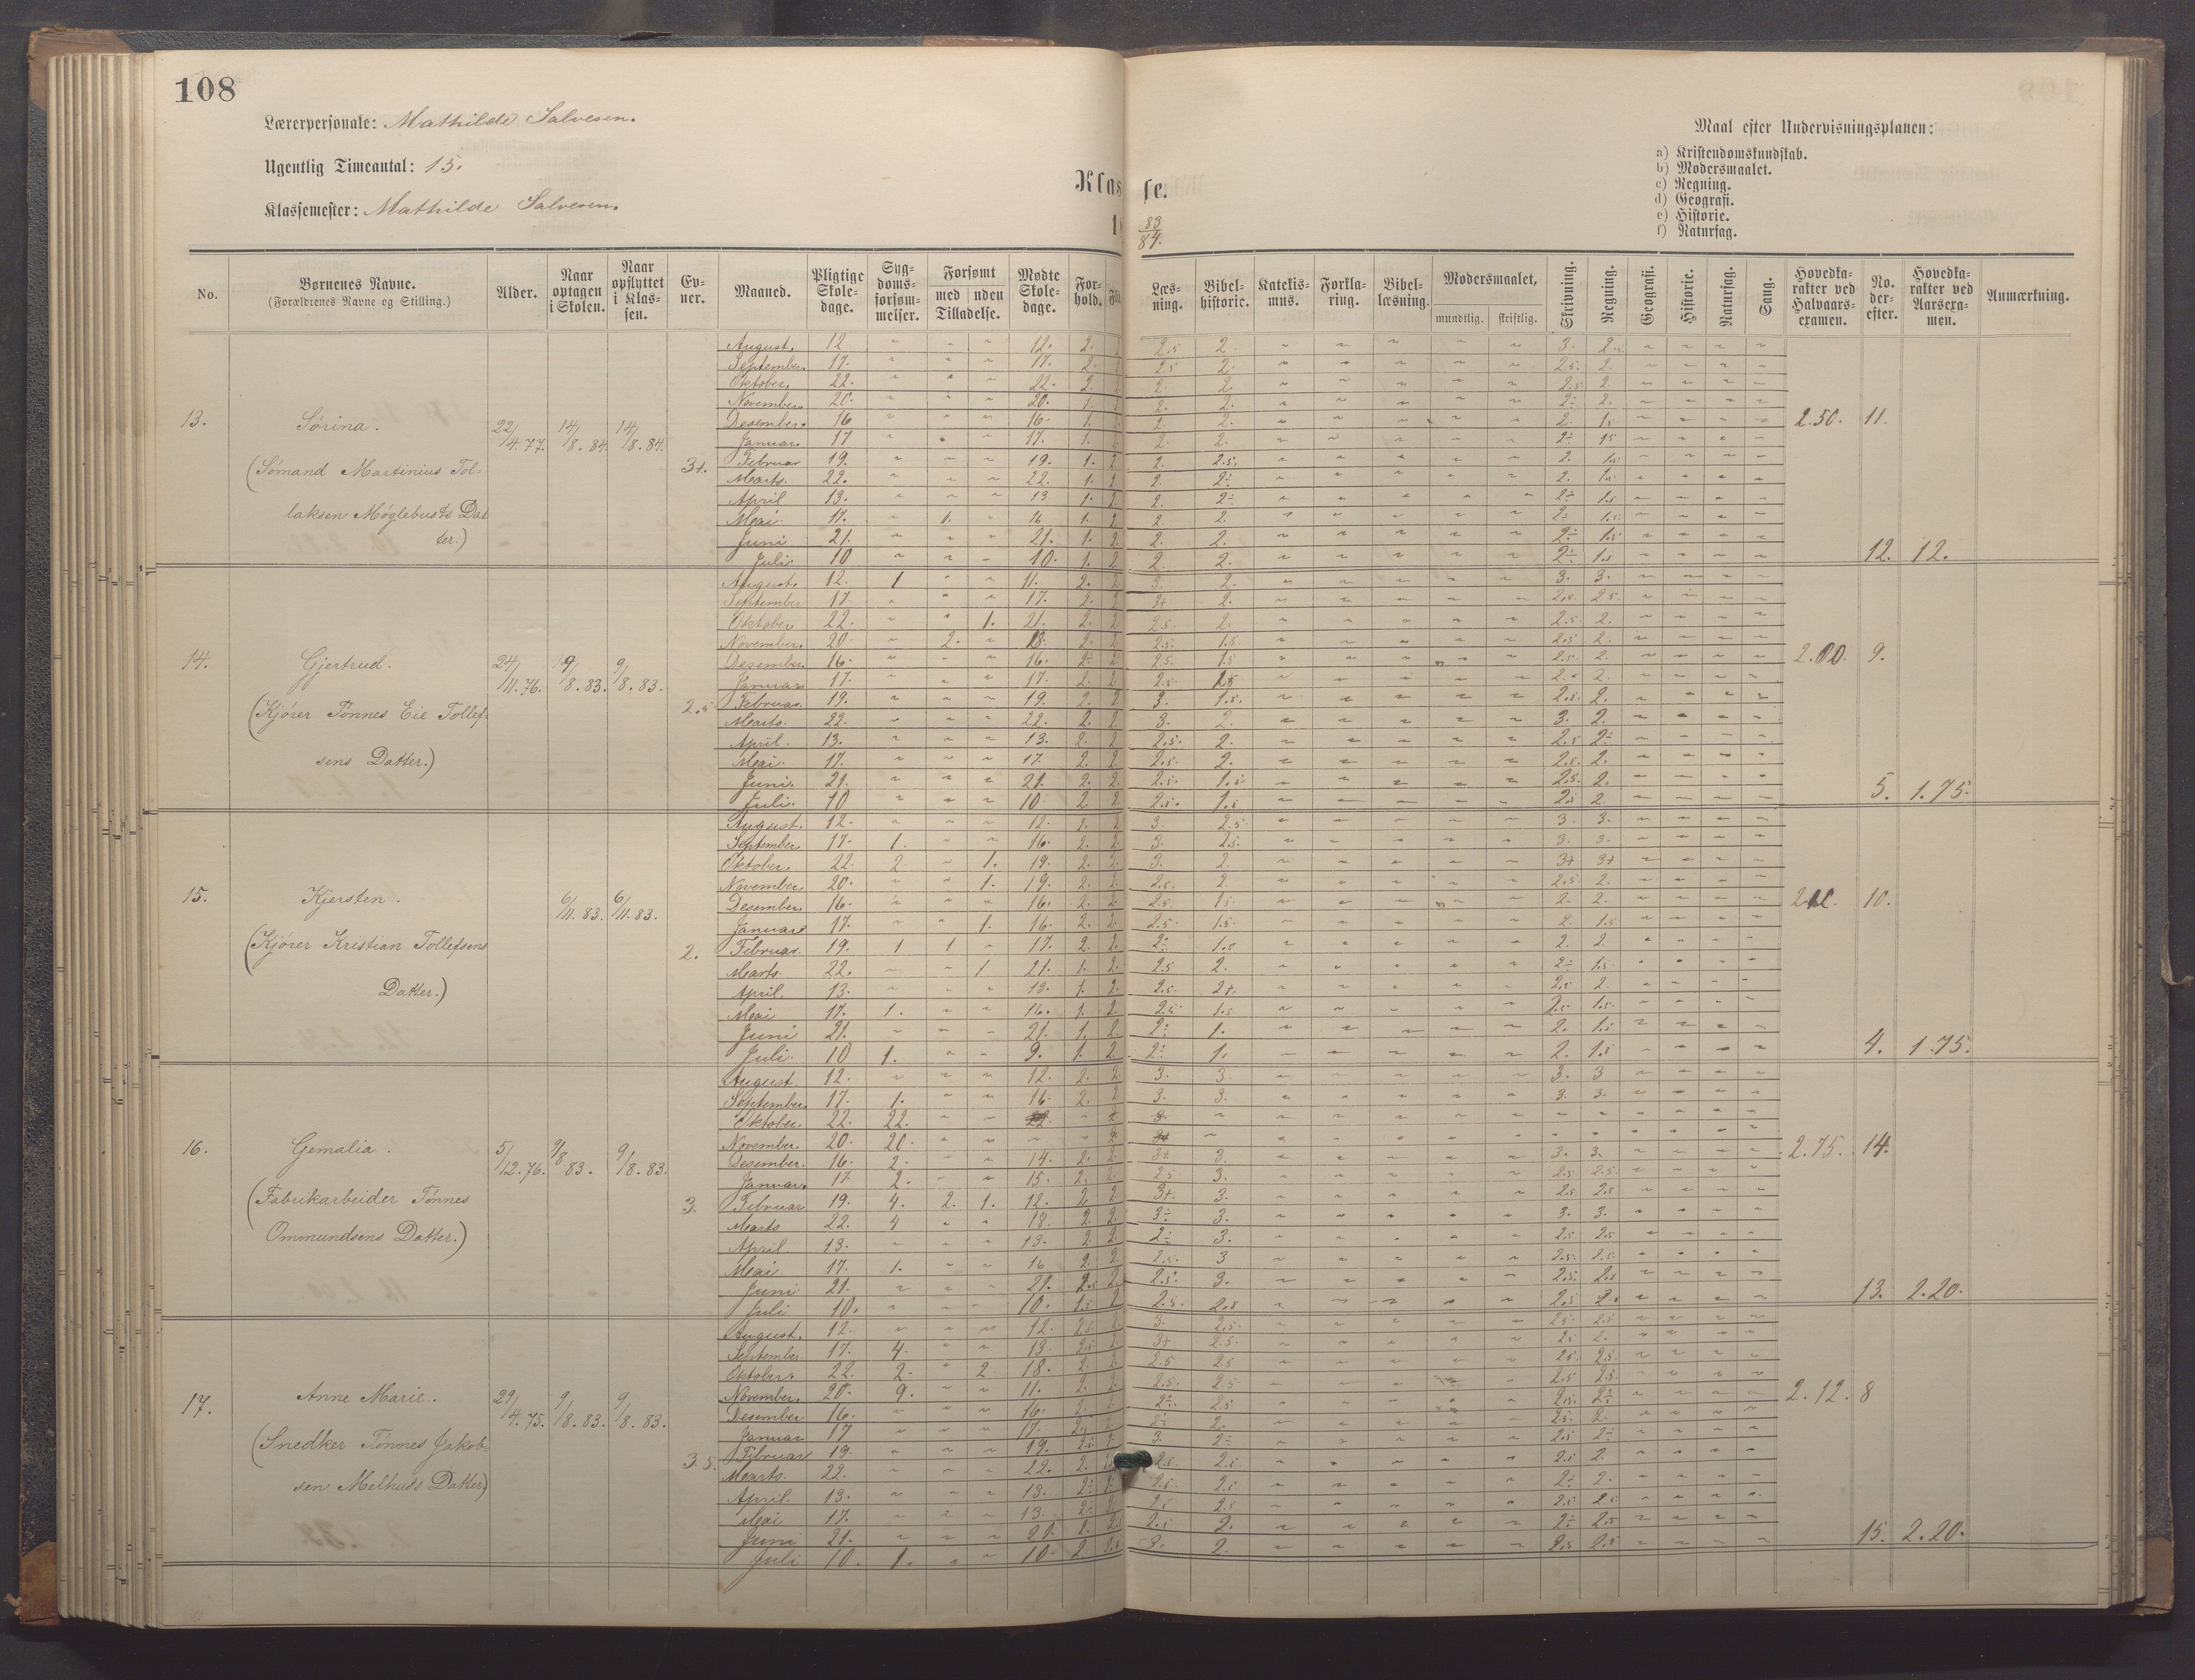 108
Lærerpersonale: Mathilde Salvesen.
Ugentlig Timeantal: 15.
Klassemester: Mathilde Salvesen.
Klasse.
83
84.
Maal efter Undervisningsplanen:
a) Kristendomskundskab.
b) Modersmaalet.
c) Regning.
d) Geografi.
e) Historie.
f) Naturfag.
No.
Børnenes Navne.
(Forældrenes Navne og Stilling.)
Alder.
Naar optagen i Skolen.
Naar opflyttet i Klassen.
Evner.
Maaned.
Pligtige Skoledage.
Sygdomsforsømmelser.
Forsømt
med uden
Tilladelse.
Mødte Skoledage.
Forhold.
Læsning.
Bibelhistorie.
Katekismus.
Forklaring.
Bibellæsning.
Modersmaalet,
mundtlig. skriftlig.
Skrivning.
Regning.
Geografi.
Historie.
Naturfag.
Sang.
Hovedkarakter ved Halvaarsexamen.
No. derefter.
Hovedkarakter ved Aarsexamen.
Anmærkning.
13. Sørina.
(Sómand Martinius Tol=
laksen Møglebusts Dat
ter.)
22/4.77. 14/8.84. 14/8.84. 3+.
August. 12 12. 2. 2.5 2. 3.
September. 17. 17. 2. 2.5 2. 2.5. 2.
Oktober. 22. 22. 2. 2. 2. 2.5. 2.
November. 20. 20. 1. 2. 2. 2.
Desember. 16 16. 1. 2. 2. 2. 1.5
Januar. 17 17. 1. 2. 2. 1.5
Februar 19. 19. 1. 2. 2. 2.5. 2. 1.5
Marts. 22. 22. 1. 2. 2. 2. 1.5
April 13. 13 1. 2. 2. 1.5
Mai. 17. 1. 16 1. 2 2. 2. 1.5.
Juni 21. 21. 1. 2. 2. 2. 1.5
Juli. 10 10. 1. 2 2. 2. 1.5
2.50. 11.
12. 12.
14. Gjertrud.
(Kjórer Tönnes Eie Tollef=
sens Datter.)
24/11.76. 9/8.83. 9/8.83. 2.5
August. 12. 1 11. 2. 2. 3. 2. 3. 3.
September 17 17. 2. 2 3+ 2. 2.5. 2.5.
Oktober 22. 1. 21. 2. 2 2.5 2. 2.5 2.
November. 20. 2. 18. 2. 2 2.5. 1.5 2.5 2.
Desember. 16. 16. 2.5. 1.5 2.5. 2.
Januar 17. 17. 2. 2 2.5 1.5 2.
Februar. 19. 19. 2. 2 3. 1.5. 2.5. 2.
Marts. 22. 22. 2. 2. 3. 2. 3. 2.
April. 13. 13. 2. 2 2.5. 2. 2.5
Mai. 17. 17. 2. 2 2.5. 2. 2.5. 2.
Juni. 21. 21. 2. 2. 2.5. 1.5 2.5. 2.
Juli. 10 10. 2 2. 2.5. 1.5 2.5 2.
2.00. 9.
5. 1.75.
15. Kjersten.
(Kjórer Kristian Tollefsens
Datter.)
6/11.83. 6/11.83. 2.
August. 12. 12. 2. 2 3. 2.5. 3. 3.
September 17. 1. 16. 2. 2 3. 2.5. 3. 3.
Oktober. 22. 2 1. 19. 2. 2. 3. 2. 3+ 3+
November. 20. 1. 19. 2. 2. 2.5. 2. 2.5. 2.
Desember. 16. 16. 2. 2. 2.5. 1.5. 2. 2.
Januar 17. 1. 16. 2. 2 2.5 1.5. 2. 1.5
Februar. 19. 1 1 17. 2. 2. 1.5 2. 2.
Marts. 22. 1 21. 1. 2. 2.5 2. 1.5.
April. 13. 13. 1. 2. 2.5. 2+. 2.5 2.
Mai 17. 1. 16. 1. 2. 2.5 1.5 2.5 1.5.
Juni 21. 21. 1. 2 1. 2. 1.5
Juli. 10 1. 9. 1. 2 1. 2. 1.5
10.
4. 1.75.
16. Gemalia.
(Fabrikarbeider Tónnes
Ommundsens Datter.)
5/12.76. 9/8.83. 9/8.83. 3.
August. 12. 12. 2. 2 3. 3. 3. 3
September. 17. 1. 16. 2. 2 3. 3. 3. 3.
Oktober. 22. 22.
November. 20. 20.
Desember. 16. 2. 14. 2. 2. 3+ 3. 3. 3.
Januar. 17 2. 15. 2. 2. 2.5 3. 2.5 2.5
Februar 19. 4. 2. 1. 12. 2. 2 3+. 3. 2.5 2.5
Marts 22. 4 18. 2. 2. 3. 3. 3.
April. 13. 13. 2. 2. 3. 2.5 2.5
Mai 17. 1. 16 2. 2. 2.5. 3 2.5. 2.5.
Juni 21. 21. 2.5 2. 2.5. 3. 2.5. 2.5
Juli 10. 10. 1.5 2 2.5. 2.5 2.5 2.
2.75. 14.
13. 2.20.
17. Anne Marie.
(Snedker Tönnes Jakob=
sen Melhuss Datter)
29/4.75. 9/8.83. 9/8.83. 3.5.
August. 12. 12. 2.5 2. 3. 2.5. 2.5. 2.5
September 17. 4. 13. 2.5 2. 3+ 2.5. 2.5 2.
Oktober. 22. 2. 2 18. 2. 2. 2.5 2.5 2.5. 2.5.
November. 20. 9. 11. 2. 2. 2.5. 2.5 2.5 2.5
Desember 16. 16. 2. 2.5 2.5.
Januar 17 17. 2. 2.5. 2.
Februar 19. 19. 3. 2.5
Marts. 22. 22. 2. 2.5. 2.5 2.5 2.
April. 13. 13. 2.5. 2.5 2.
Mai 17. 13. 2.5 2.5 2.5 2.5
Juni 21. 21. 2. 2.5 2.5 2. 2.5
Juli 10. 1. 10. 2. 2. 2.5 2.5
2.12. 8
15. 2.20.